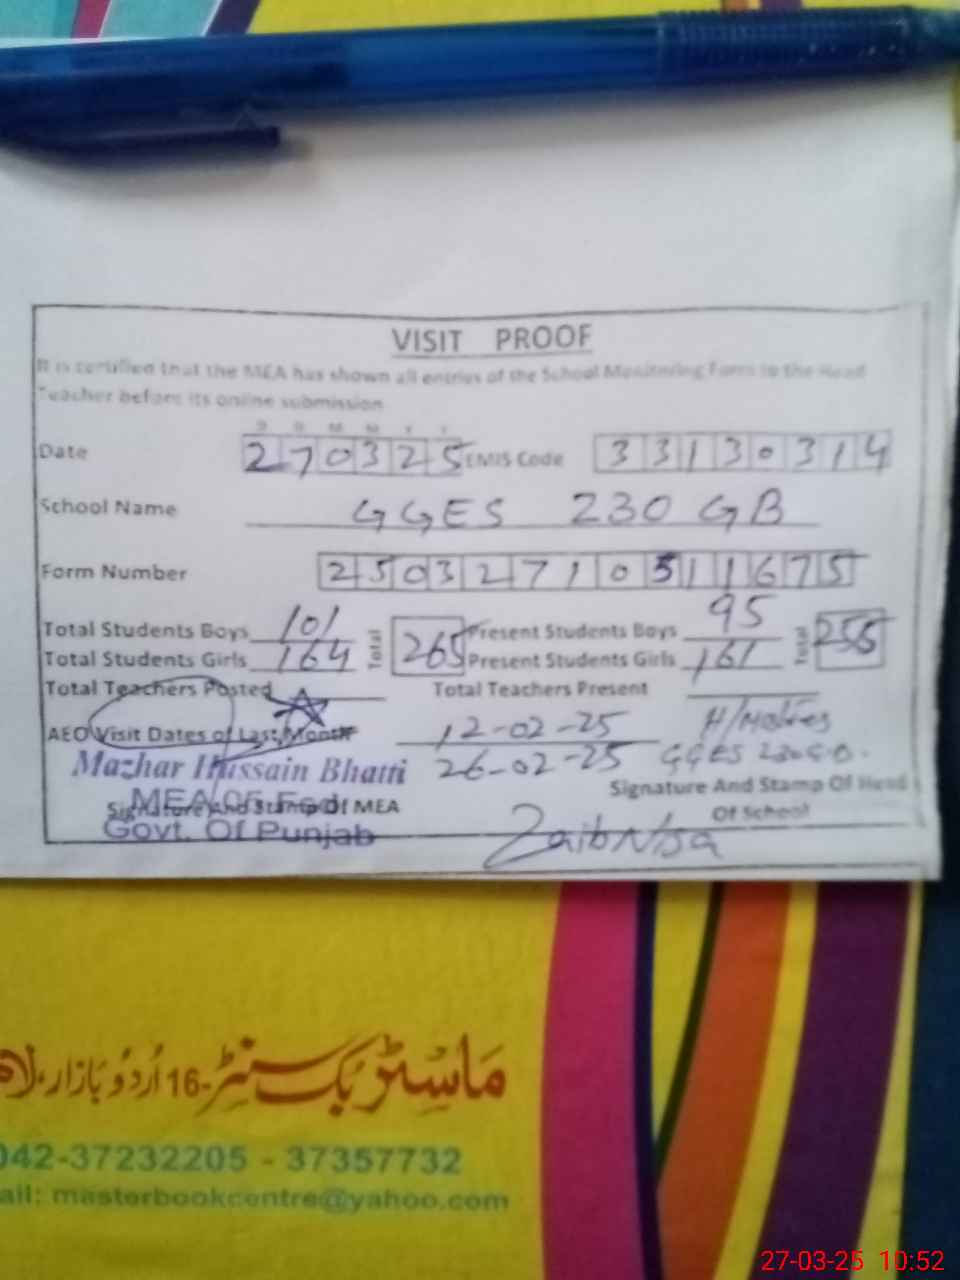 VISIT PROOF
It is certified that the MEA has shown all entries of the School Monitoring Form to the Head
Teacher before its online submission
D D M M Y Y
Date 270325 EMIS Code 33130314
School Name GGES 230 GB
Form Number 25032710511675
Total Students Boys 101 Total 265 Present Students Boys 95 Total 256
Total Students Girls 164 Present Students Girls 161
Total Teachers Posted Total Teachers Present
AEO Visit Dates of Last Month 12-02-25 H/Mistress
26-02-25 GGES 230 G.B.
Mazhar Hussain Bhatti
MEA 05 Fsd
Govt. Of Punjab
Signature And Stamp Of MEA
Signature And Stamp Of Head
Of School
ZaibNisa
ماسٹر بک سنٹر-16 اُردُو بَازار،
042-37232205 - 37357732
ail: masterbookcentre@yahoo.com
27-03-25 10:52